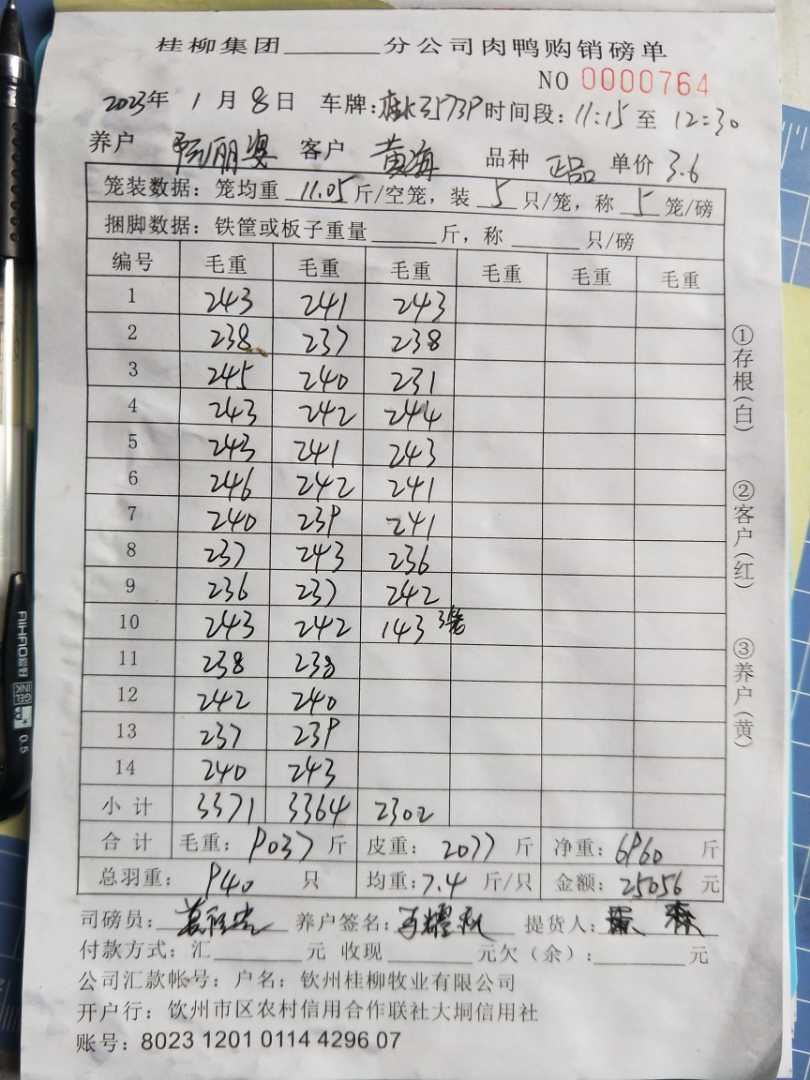 桂柳集团______分公司肉鸭购销磅单
NO 0000764
2023年 1月 8日 车牌: 时间段: 11:15 至 12:30
养户 丽婆 客户 黄海 品种 正品 单价 3.6
笼装数据: 笼均重 11.05 斤/空笼, 装 5 只/笼, 称 5 笼/磅
捆脚数据: 铁筐或板子重量______斤, 称______只/磅
编号 毛重 毛重 毛重 毛重 毛重 毛重
1 243 241 243
2 238 237 238
3 245 240 231
4 243 242 244
5 243 241 243
6 246 242 241
7 240 239 241
8 237 243 236
9 236 237 242
10 243 242 143 3笼
11 238 238
12 242 240
13 237 239
14 240 243
小计 3371 3364 2302
合计 毛重: 9037 斤 皮重: 2077 斤 净重: 6960 斤
总羽重: 940 只 均重: 7.4 斤/只 金额: 25056 元
司磅员: 养户签名: 提货人:
付款方式: 汇______元 收现______元欠(余):______元
公司汇款帐号: 户名: 钦州桂柳牧业有限公司
开户行: 钦州市区农村信用合作联社大垌信用社
账号: 8023 1201 0114 4296 07
①存根(白)
②客户(红)
③养户(黄)
AIHAO 爱好
GEL INK
0.5